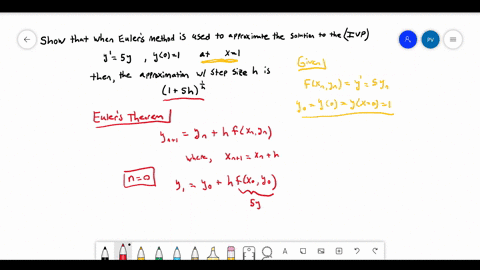 Show that when Euler's method is used to approximate the solution to the (IVP)
y' = 5y , y(0)=1 at x=1
then, the approximation w/ step size h is
(1+5h)^(1/h)
Given
f(xn,yn) = y' = 5yn
y0 = y(0) = y(x=0) = 1
Euler's Theorem
yn+1 = yn + h f(xn,yn)
where, xn+1 = xn + h
n=0
y1 = y0 + h f(x0,y0)
5y
PV